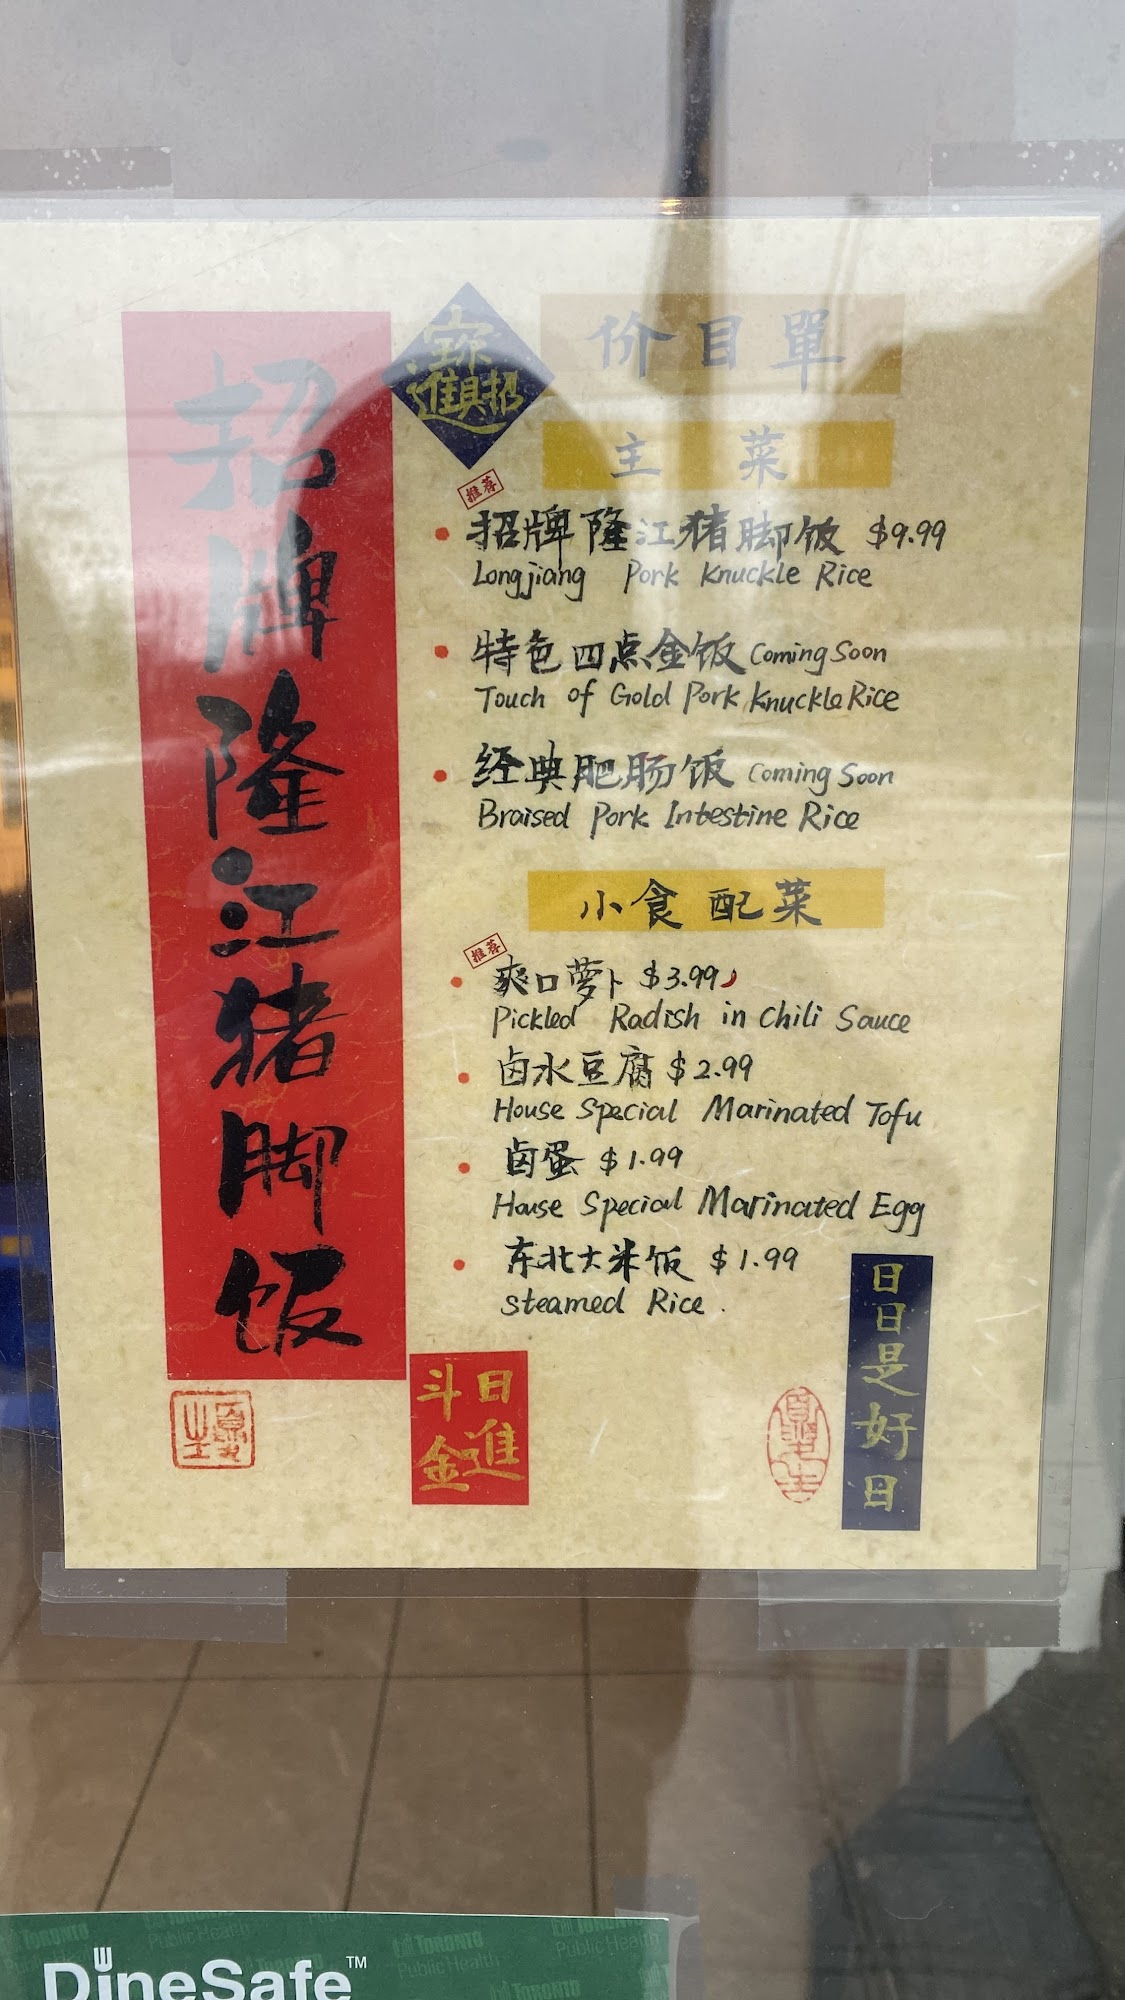 招牌隆江猪脚饭
招財進寶
价目單
主菜
推荐
招牌隆江猪脚饭 $9.99
Longjiang Pork Knuckle Rice
特色四点金饭 Coming Soon
Touch of Gold Pork Knuckle Rice
经典肥肠饭 Coming Soon
Braised Pork Intestine Rice
小食配菜
推荐
爽口萝卜 $3.99
Pickled Radish in Chili Sauce
卤水豆腐 $2.99
House Special Marinated Tofu
卤蛋 $1.99
House Special Marinated Egg
东北大米饭 $1.99
Steamed Rice.
日進斗金
日日是好日
TORONTO
Public Health
TORONTO
Public Health
TORONTO
Public Health
TORONTO
DineSafe™